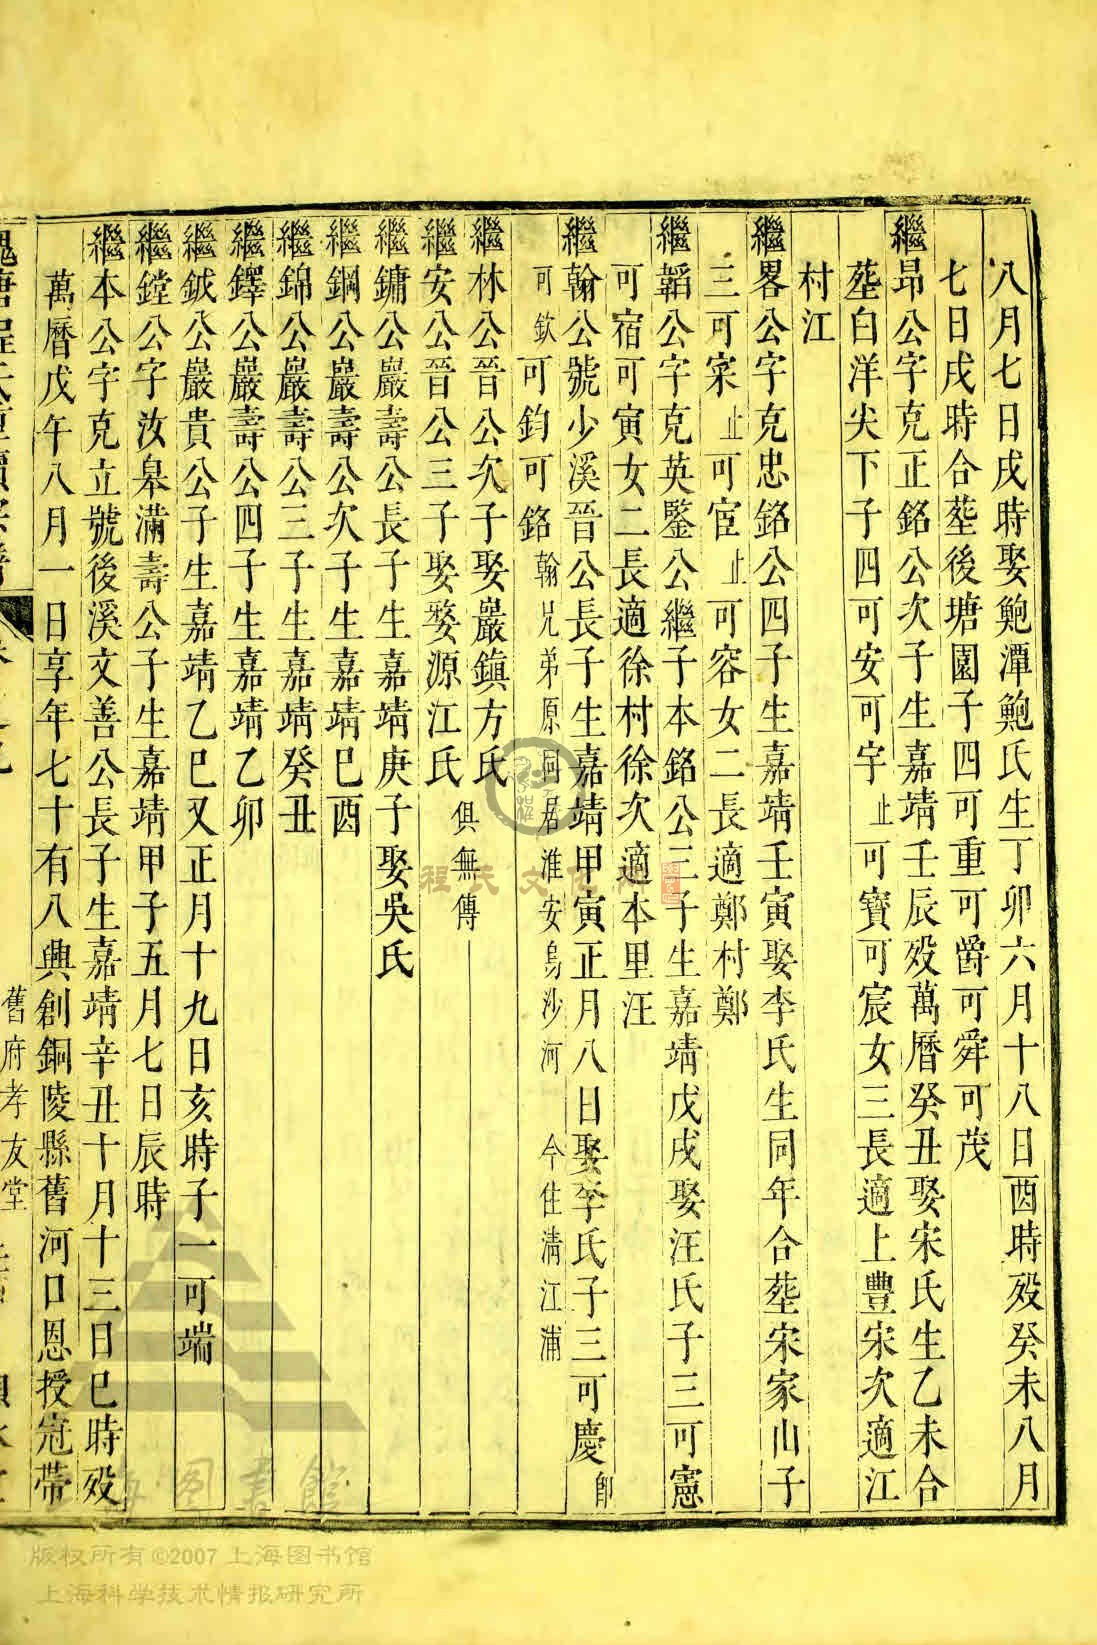 八月七日戌時娶鮑潭鮑氏生丁卯六月十八日酉時殁癸未八月
七日戌時合塟後塘園子四可重可爵可舜可茂
繼昂公字克正銘公次子生嘉靖壬辰殁萬曆癸丑娶宋氏生乙未合
塟白洋尖下子四可安可宇止可寶可宸女三長適上豐宋次適江
村江
繼畧公字克忠銘公四子生嘉靖壬寅娶李氏生同年合塟宋家山子
三可寀止可宦止可容女二長適鄭村鄭
繼韜公字克英鑒公繼子本銘公三子生嘉靖戊戌娶汪氏子三可憲
可宿可寅女二長適徐村徐次適本里汪
繼翰公號少溪晉公長子生嘉靖甲寅正月八日娶李氏子三可慶即
可欽可鈞可銘翰兄弟原同居淮安烏沙河 今住清江浦
繼林公晉公次子娶嚴鎮方氏 俱無傳
繼安公晉公三子娶婺源江氏
繼鏞公嚴壽公長子生嘉靖庚子娶吳氏
繼鋼公嚴壽公次子生嘉靖已酉
繼錦公嚴壽公三子生嘉靖癸丑
繼鐸公嚴壽公四子生嘉靖乙卯
繼鉞公嚴貴公子生嘉靖乙巳又正月十九日亥時子一可端
繼鏜公字汝皋滿壽公子生嘉靖甲子五月七日辰時
繼本公字克立號後溪文善公長子生嘉靖辛丑十月十三日巳時殁
萬曆戊午八月一日享年七十有八興創銅陵縣舊河口恩授冠帶
舊府孝友堂
程氏文化網
上海图書館
版权所有©2007上海图书馆
上海科学技术情报研究所